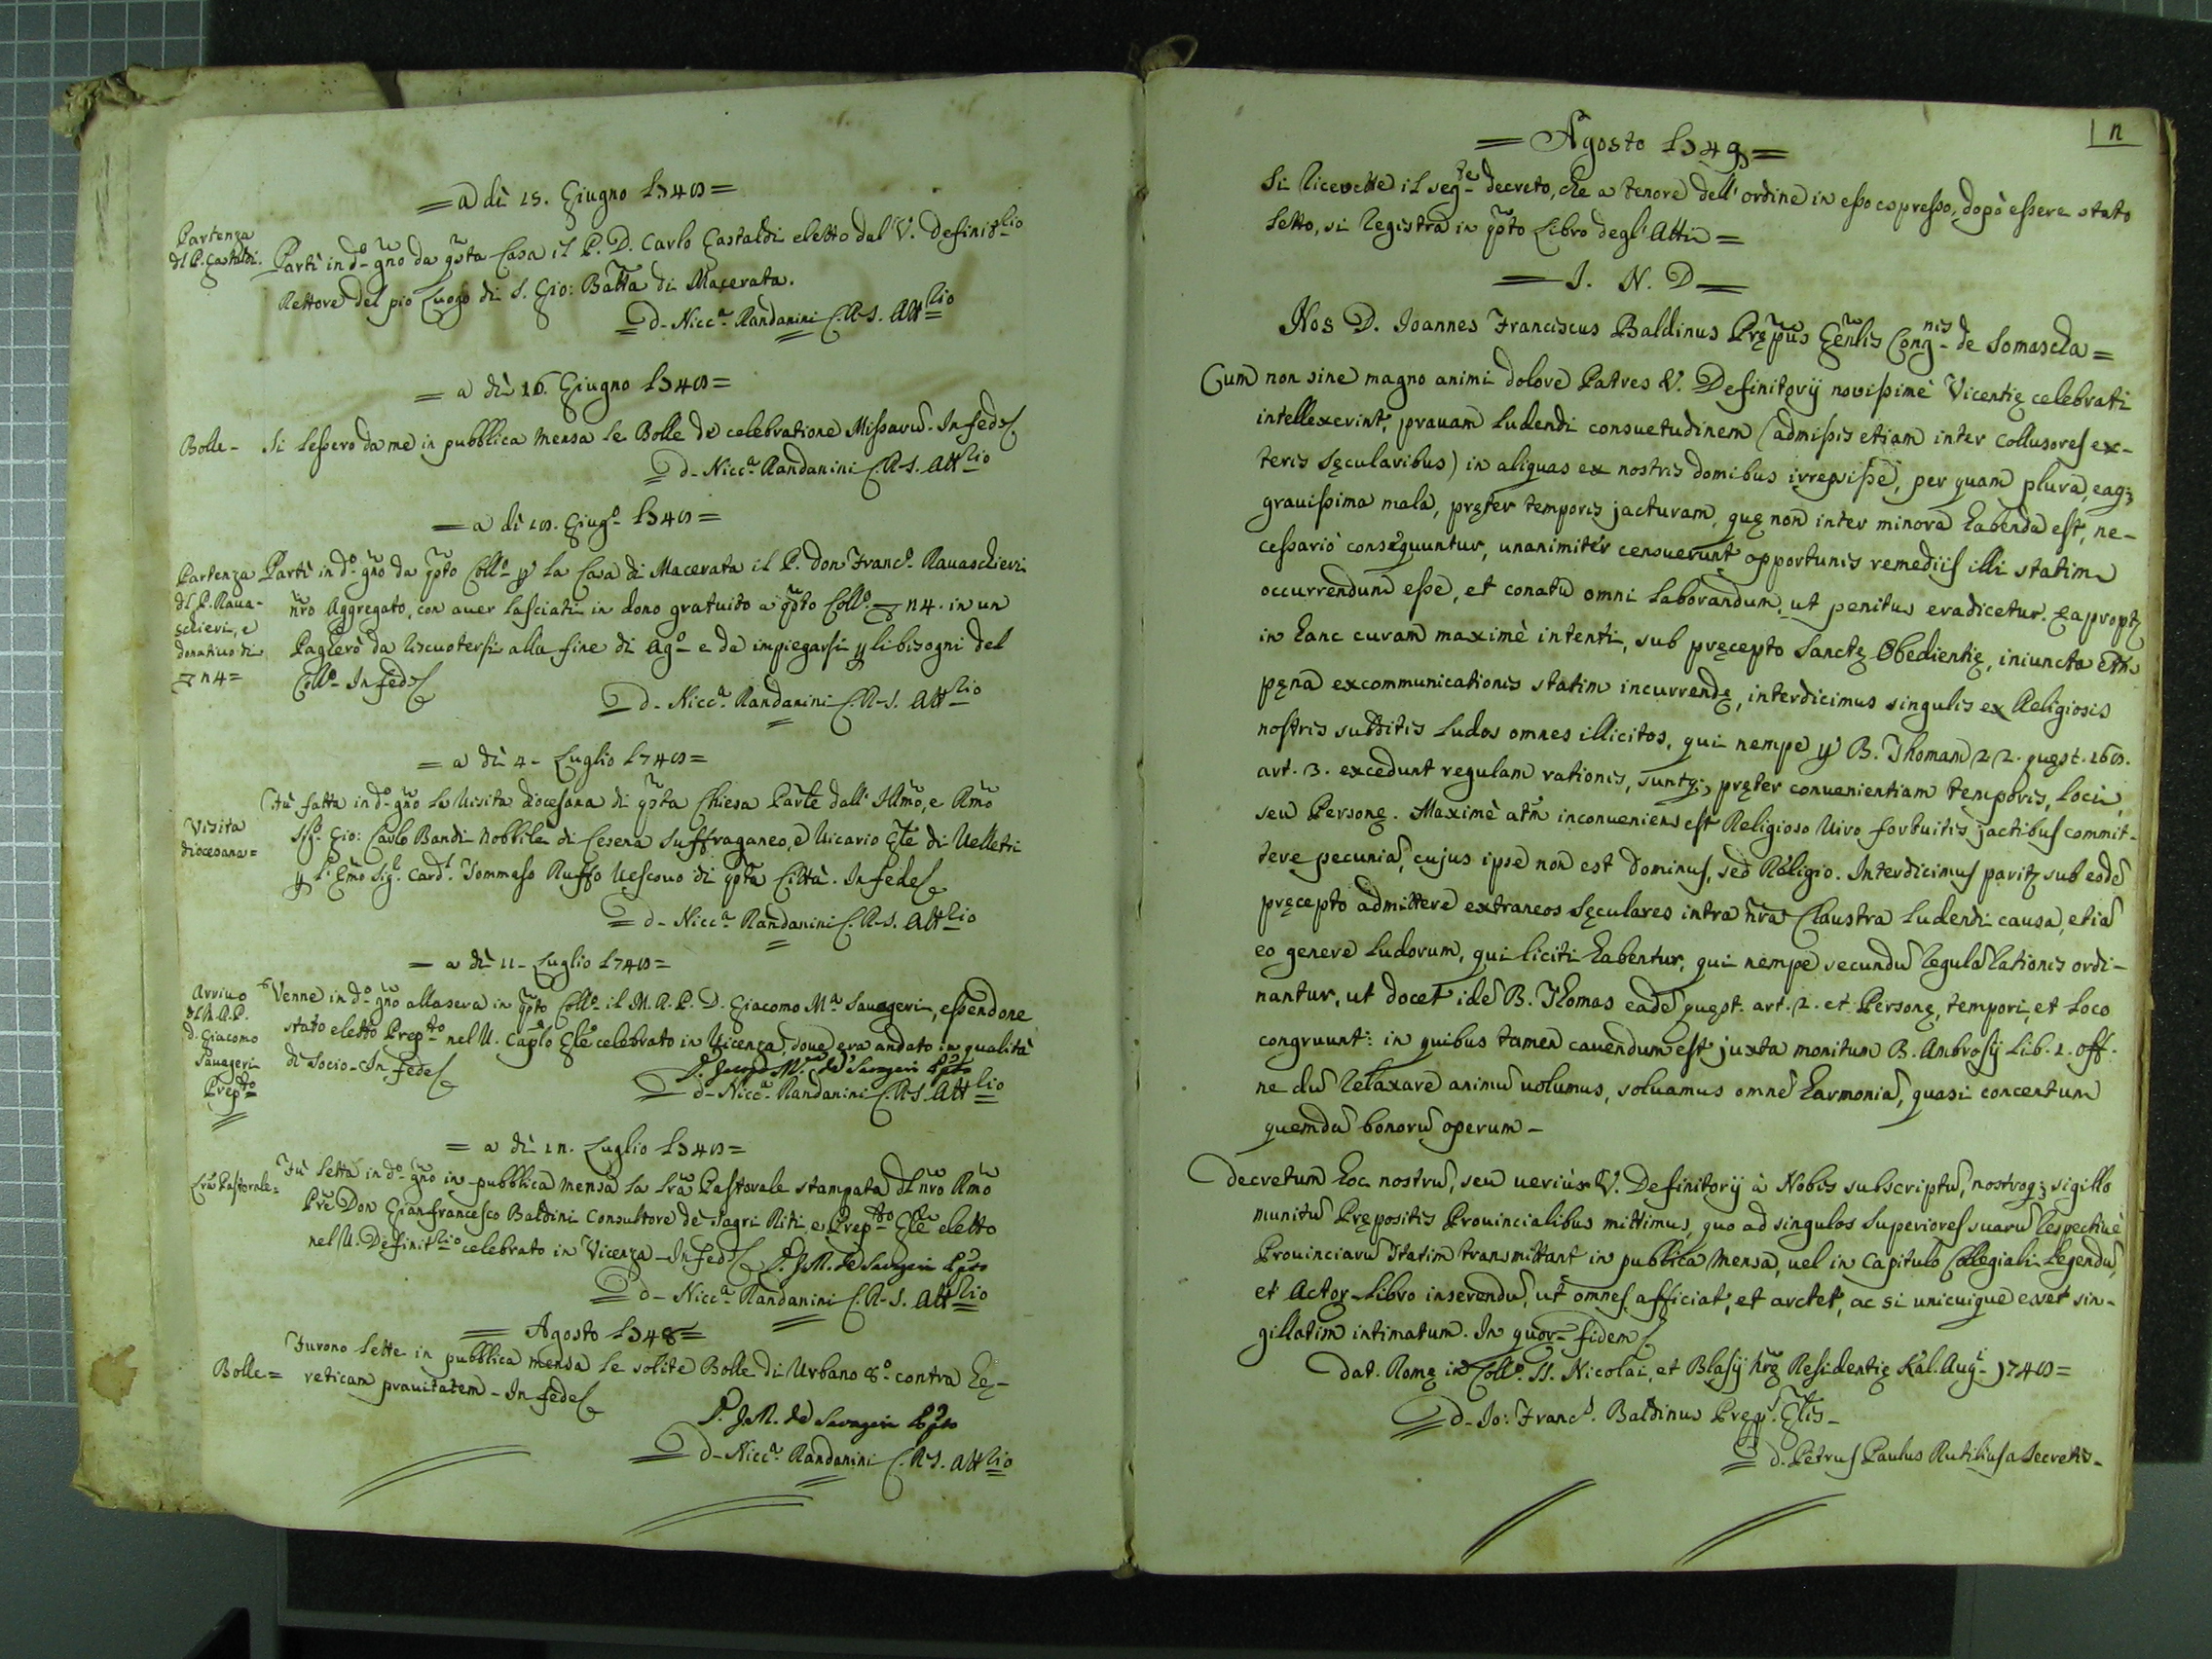 = a dì 15. Giugno 1748 =
Partenza
dl P. Gastaldi.
Partì in do gno da qsta Casa il P. D. Carlo Gastaldi eletto dal V. Definitlio
Rettore del pio Luogo di S. Gio: Batta di Macerata.
D. Nicca Randanini C.R.S. Attlio
= a dì 16. Giugno 1748 =
Bolle - Si lessero da me in pubblica mensa le Bolle de celebratione Missarum. In fede
D. Nicca Randanini C.R.S. Attlio
= a dì 18. Giugo 1748 =
Partenza
dl P. Rava-
schieri, e
donativo di
n 4 =
Partì in do gno da qsto Collo p la Casa di Macerata il P. Don Franco Rauaschieri
nro Aggregato, con auer lasciati in dono gratuito a qsto Collo n 4. in un
Pagherò da riscuotersi alla fine di Ago e da impiegarsi p li bisogni del
Collo In fede
D. Nicca Randanini C.R.S. Attlio
= a dì 4 - Luglio 1748 =
Visita
diocesana =
Fù fatta in do gno la Uisita diocesana di qsta Chiesa Parle dall' Illmo, e Rmo
Sigr Gio: Carlo Bandi nobbile di Cesena Suffraganeo, e Uicario Gle di Uelletri
p l'Emo Sigr Cardl Tommaso Ruffo Uescouo di qsta Città. In fede
D. Nicca Randanini C.R.S. Attlio
= a dì 11 - Luglio 1748 =
Arriuo
dl M.R.P.
D. Giacomo
Sauageri
Prepto
Venne in do gno alla sera in qsto Collo il M. R. P. D. Giacomo Ma Sauageri, essendone
stato eletto Prepto nel U. Caplo Gle celebrato in Uicenza, doue era andato in qualità
di Socio - In fede
D. Nicca Randanini C.R.S. Attlio
= a dì 12. Luglio 1748 =
Lra Pastorale =
Fù letta in do gno in pubblica mensa la lra Pastorale stampata dl nro Rmo
Pre Don Gianfrancesco Baldini Consultore de' Sagri Riti e Prepto Gle eletto
nel U. Definitlio celebrato in Vicenza - In fede D. J.M. de Savageri Ppto
D. Nicca Randanini C.R.S. Attlio
= Agosto 1748 =
Bolle =
Furono lette in pubblica mensa le solite Bolle di Urbano 8o contra hę-
reticam prauitatem - In fede
D. J.M. de Savageri Ppto
D. Nicca Randanini C.R.S. Attlio
= Agosto 1748 =
Si riceuette il segte decreto, che a tenore dell' ordine in esso espresso, dopò essere stato
letto, si registra in qsto Libro degl' Atti =
= I. N. D =
Nos D. Ioannes Franciscus Baldinus Pręptus Genlis Congnis de Somascha =
Cum non sine magno animi dolore Patres V. Definitorij novissimè Vicentię celebrati
intellexerint, prauam ludendi consuetudinem (admissis etiam inter collusores ex-
teris sęcularibus) in aliquas ex nostris domibus irrepsisse, per quam plura, eaq;
grauissima mala, pręter temporis jacturam, quę non inter minora habenda est, ne-
cessariò consequuntur, unanimiter censuerunt opportunis remediis illi statim
occurrendum esse, et conatu omni laborandum, ut penitus eradicetur. Eapropt
in hanc curam maximè intenti, sub pręcepto Sanctę Obedientię, iniuncta etm
pęna excommunicationis statim incurrendę, interdicimus singulis ex Religiosis
nostris subditis ludos omnes illicitos, qui nempe p B. Thomam 2 2. quęst. 168.
art. 3. excedunt regulam rationis, suntq; pręter conuenientiam temporis, loci,
seu Personę. Maximè atm inconueniens est Religioso Uiro fortuitis jactibus commit-
tere pecunia, cujus ipse non est Dominus, sed Religio. Interdicimus parit sub eode
pręcepto admittere extraneos sęculares intra nra Claustra ludendi causa, etia
eo genere ludorum, qui liciti habentur, qui nempe secundu regula rationis ordi-
nantur, ut docet ide B. Thomas eade quęst. art. 2. et Personę, tempori, et loco
congruunt: in quibus tamen cauendum est juxta monitum B. Ambrosij lib. 1. off.
ne du relaxare animu uolumus, soluamus omne harmonia, quasi concentum
quemda bonoru operum -
Decretum hoc nostru, seu uerius V. Definitorij à Nobis subscriptu, nostroq; sigillo
munitu Prępositis Prouincialibus mittimus, quo ad singulos Superiores suaru respectiuè
Prouinciaru statim transmittant in publica mensa, uel in Capitulo Collegiali legendu,
et Actor Libro inserendu, ut omnes afficiat, et arctet, ac si unicuique esset sin-
gillatim intimatum. In quor fidem
Dat. Romę in Collo SS. Nicolai, et Blasij nrę Residentię Kal. Augi 1748 =
D. Io: Francs. Baldinus Pręps. Glis -
D. Petrus Paulus Rutilius a Secretis -